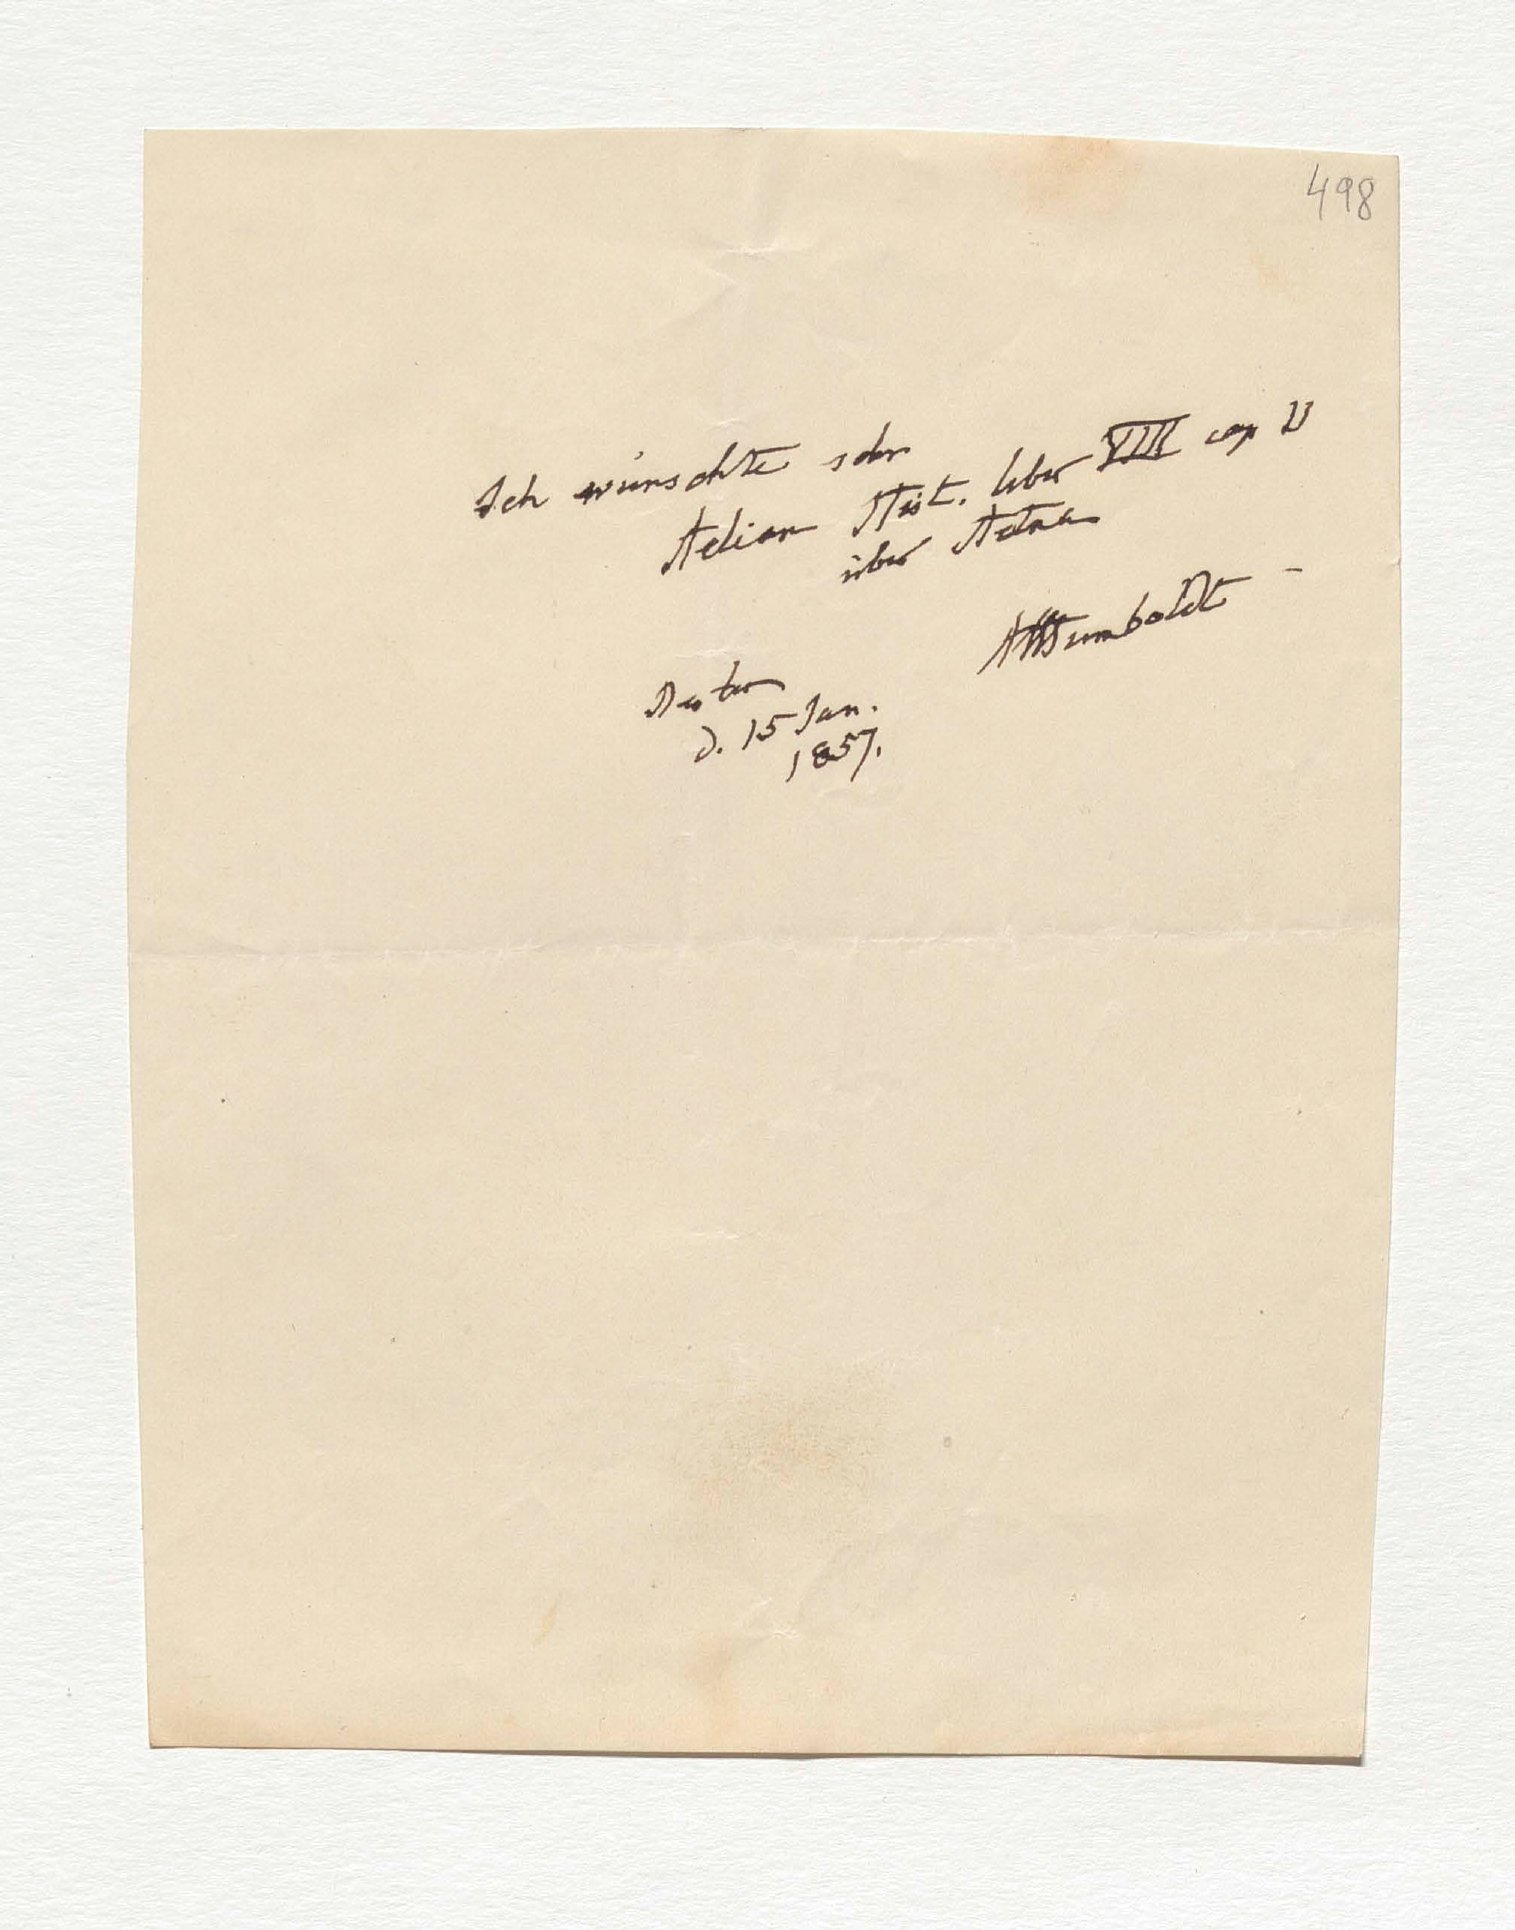 498
Ich wünschte sehr
Aelian Hist. liber VIII cap 11
über Aetna
AvHumboldt
d. 15 Jan.
1857.